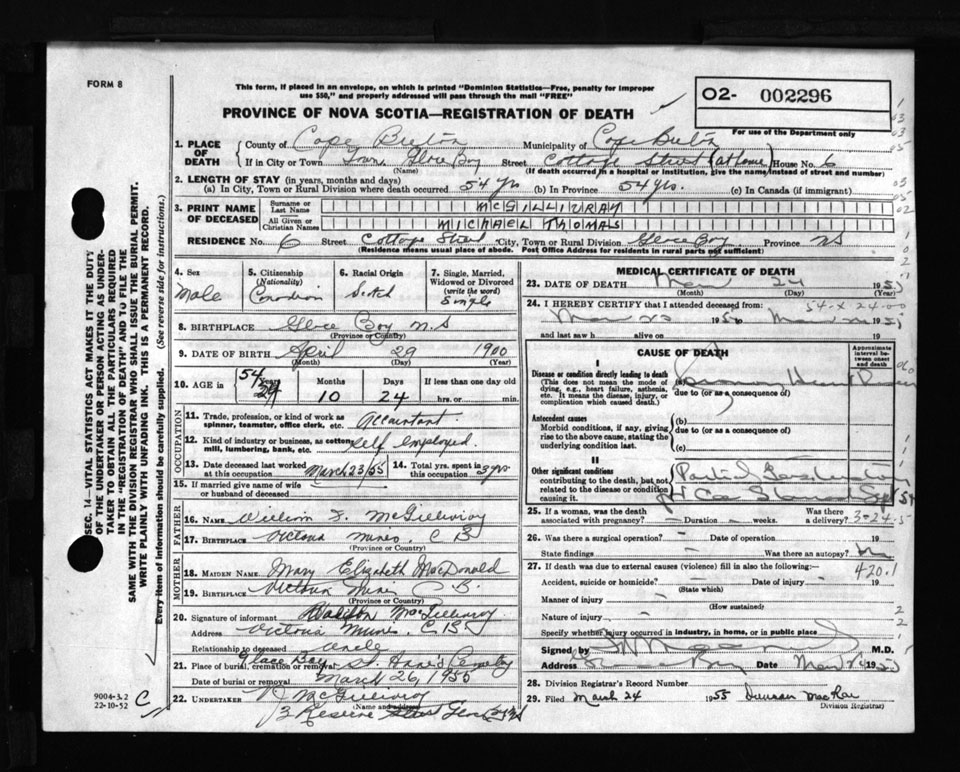 FORM 8
This form, if placed in an envelope, on which is printed "Dominion Statistics—Free, penalty for improper
use $50," and properly addressed will pass through the mail "FREE"
O2- 002296
For use of the Department only
PROVINCE OF NOVA SCOTIA—REGISTRATION OF DEATH
1. PLACE OF DEATH County of Cape Breton Municipality of Cape Breton
If in City or Town Town Glace Bay Street Cottage Street (at home) House No. 6
(Name) (If death occurred in a hospital or institution, give the name instead of street and number)
2. LENGTH OF STAY (in years, months and days)
(a) In City, Town or Rural Division where death occurred 54 yrs (b) In Province 54 yrs. (c) In Canada (if immigrant)
3. PRINT NAME OF DECEASED Surname or Last Name MCGILLIVRAY
All Given or Christian Names MICHAEL THOMAS
RESIDENCE No. 6 Street Cottage Street City, Town or Rural Division Glace Bay Province NS
(Residence means usual place of abode. Post Office Address for residents in rural parts not sufficient)
4. Sex Male
5. Citizenship (Nationality) Canadian
6. Racial Origin Scotch
7. Single, Married, Widowed or Divorced (write the word) Single
8. BIRTHPLACE Glace Bay N.S
(Province or Country)
9. DATE OF BIRTH April 29 1900
(Month) (Day) (Year)
10. AGE in 54 Years 10 Months 24 Days If less than one day
hrs. or min.
OCCUPATION
11. Trade, profession, or kind of work as spinner, teamster, office clerk, etc. Accountant
12. Kind of industry or business, as cotten mill, lumbering, bank, etc. self employed.
13. Date deceased last worked at this occupation March 23/55
14. Total yrs. spent in this occupation 3 yrs
15. If married give name of wife or husband of deceased
FATHER
16. NAME William F. McGillivray
17. BIRTHPLACE Victoria Mines C B
(Province or Country)
MOTHER
18. MAIDEN NAME Mary Elizabeth MacDonald
19. BIRTHPLACE Victoria Mines C.B.
(Province or Country)
20. Signature of informant MacGillivray
Address Victoria Mines C B
Relationship to deceased uncle
21. Place of burial, cremation or removal Glace Bay St. Anne's Cemetery
Date of burial or removal March 26, 1955
22. UNDERTAKER V McGillivray
(Name and address)
Reserve Street Glace Bay NS
MEDICAL CERTIFICATE OF DEATH
23. DATE OF DEATH Mar 24 1955
(Month) (Day)
24. I HEREBY CERTIFY that I attended deceased from:
and last saw h alive on 19
CAUSE OF DEATH
Approximate interval between onset and death
I
Disease or condition directly leading to death
(This does not mean the mode of dying, e.g., heart failure, asthenia, etc. It means the disease, injury, or complication which caused death.)
(a)
due to (or as a consequence of)
Antecedent causes
Morbid conditions, if any, giving rise to the above cause, stating the underlying condition last.
(b)
due to (or as a consequence of)
(c)
II
Other significant conditions contributing to the death, but not related to the disease or condition causing it.
Partial Gastrectomy
25. If a woman, was the death associated with pregnancy? — Duration weeks. Was there a delivery?
26. Was there a surgical operation? — Date of operation 19
State findings — Was there an autopsy? No
27. If death was due to external causes (violence) fill in also the following: 420.1
Accident, suicide or homicide? — Date of injury 19
(State which)
Manner of injury —
(How sustained)
Nature of injury —
Specify whether injury occurred in industry, in home, or in public place
Signed by M.D.
Address Glace Bay Date Mar 1955
28. Division Registrar's Record Number
29. Filed March 24 1955 Duncan MacRae
(Division Registrar)
SEC. 14—VITAL STATISTICS ACT MAKES IT THE DUTY
OF THE UNDERTAKER OR PERSON ACTING AS UNDER-
TAKER TO OBTAIN ALL THE PARTICULARS REQUIRED
IN THE "REGISTRATION OF DEATH" AND TO FILE THE
SAME WITH THE DIVISION REGISTRAR WHO SHALL ISSUE THE BURIAL PERMIT.
WRITE PLAINLY WITH UNFADING INK. THIS IS A PERMANENT RECORD.
Every item of information should be carefully supplied. (See reverse side for instructions.)
9004-3.2
22-10-52
C